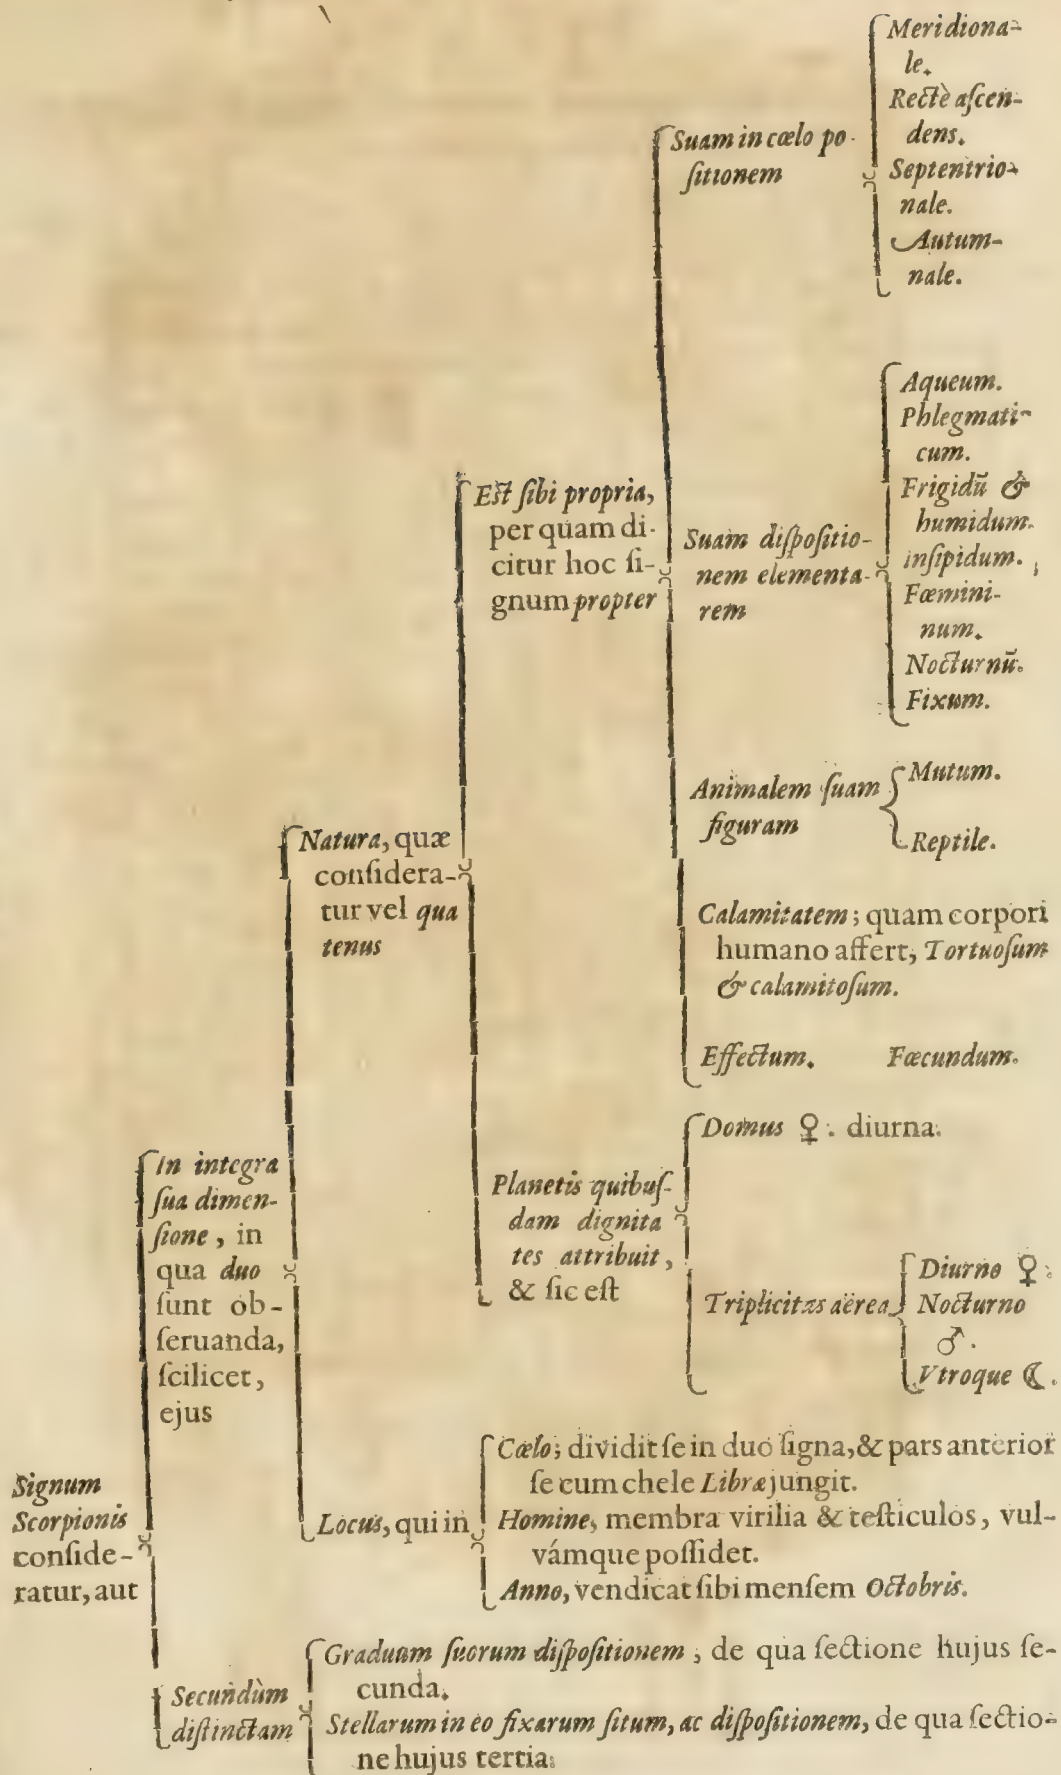 Signum
Scorpionis
conside-
ratur, aut
In integra
sua dimen-
sione, in
qua duo
sunt ob-
seruanda,
scilicet,
ejus
Natura, quæ
considera-
tur vel qua
tenus
Est sibi propria,
per quam di-
citur hoc si-
gnum propter
Suam in cœlo po-
sitionem
Meridiona-
le.
Rectè ascen-
dens.
Septentrio-
nale.
Autum-
nale.
Suam dispositio-
nem elementa-
rem
Aqueum.
Phlegmati-
cum.
Frigidū &
humidum.
insipidum.
Fœmini-
num.
Nocturnū.
Fixum.
Animalem suam
figuram
Mutum.
Reptile.
Calamitatem; quam corpori
humano affert, Tortuosum
& calamitosum.
Effectum. Fœcundum.
Planetis quibus-
dam dignita
tes attribuit,
& sic est
Domus ♀. diurna.
Triplicitas aërea
Diurno ♀.
Nocturno
♂.
Vtroque ☾.
Locus, qui in
Cœlo; dividit se in duo signa, & pars anterior
se cum chele Libræ jungit.
Homine, membra virilia & testiculos, vul-
vámque possidet.
Anno, vendicat sibi mensem Octobris.
Secundùm
distinctam
Graduum suorum dispositionem, de qua sectione hujus se-
cunda.
Stellarum in eo fixarum situm, ac dispositionem, de qua sectio-
ne hujus tertia.